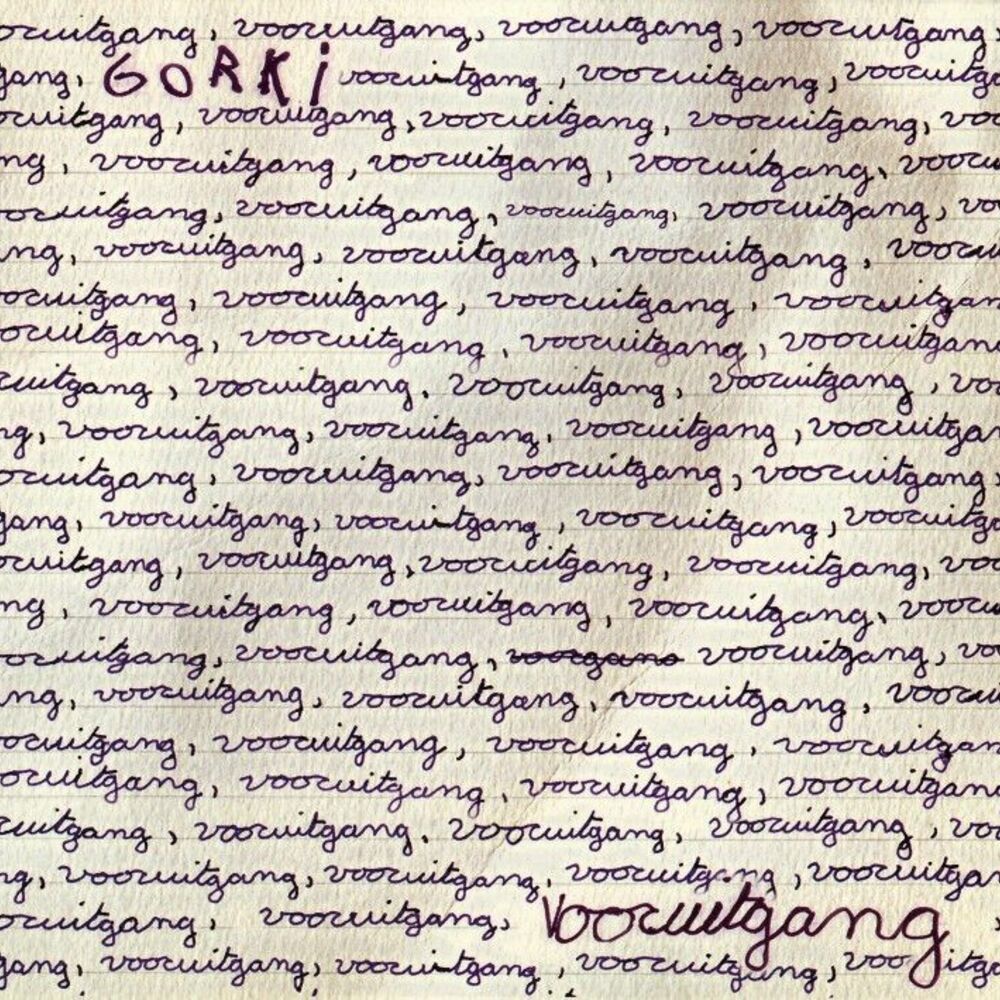 oruitgang, vooruitgang, vooruitgang, vooruitgang,
gang, GORKi vooruitgang, vooruitgang, vooruitg
oruitgang, vooruitgang, vooruitgang, vooruitgang, voo
ng, vooruitgang, vooruitgang, vooruitgang, vooru
ooruitgang, vooruitgang, vooruitgang, vooruitgang, vo
ng, vooruitgang, vooruitgang, vooruitgang, vooru
ooruitgang, vooruitgang, vooruitgang, vooruitgan
ooruitgang, vooruitgang, vooruitgang, vooruitgang
ruitgang, vooruitgang, vooruitgang, vooruitgang, vo
ng, vooruitgang, vooruitgang, vooruitgang, vooruitgan
oruitgang, vooruitgang, vooruitgang, vooruitgang,
gang, vooruitgang, vooruitgang, vooruitgang, vooruitg
oruitgang, vooruitgang, vooruitgang, vooruitgang, voo
ng, vooruitgang, vooruitgang, vooruitgang, vooru
ooruitgang, vooruitgang, voorgang vooruitgang, vo
ng, vooruitgang, vooruitgang, vooruitgang, vooru
ooruitgang, vooruitgang, vooruitgang, vooruitgan
ooruitgang, vooruitgang, vooruitgang, vooruitgang
ruitgang, vooruitgang, vooruitgang, vooruitgang, voo
ng, vooruitgang, vooruitgang, vooruitgang, vooruitgan
oruitgang, vooruitgang, Vooruitgang
gang, vooruitgang, vooruitgang, vooruitgang, voo itga